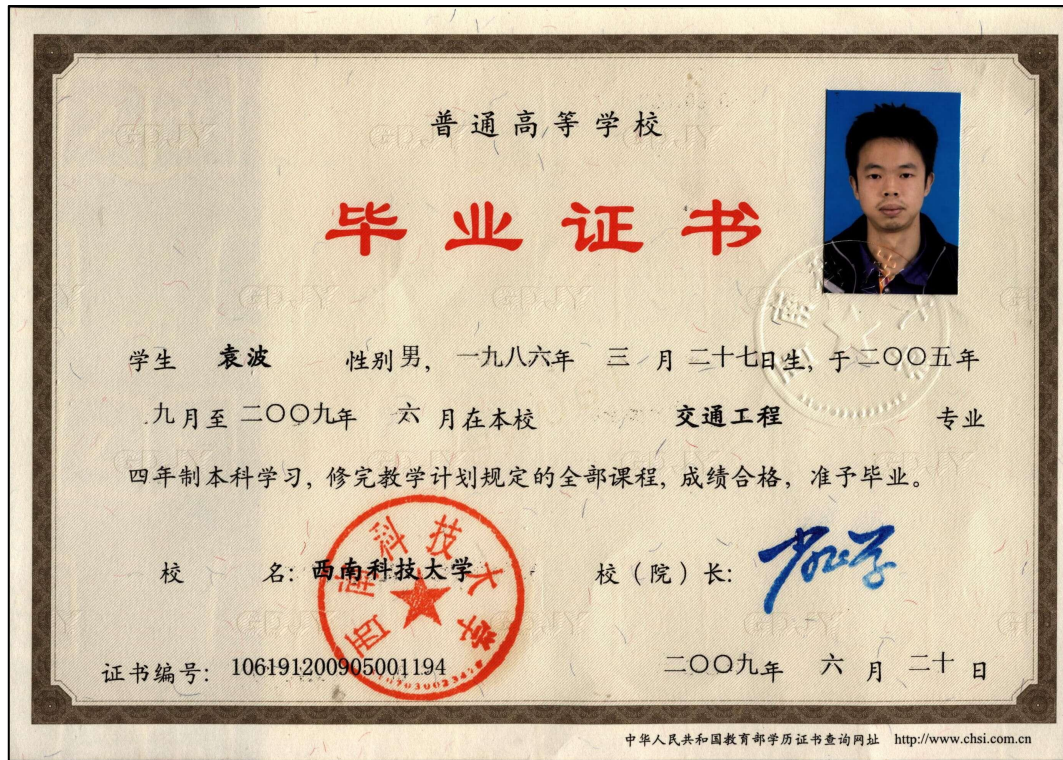 普通高等学校
毕业证书
学生 袁波 性别 男, 一九八六年 三 月 二十七日生, 于二〇〇五年
九月至 二〇〇九年 六 月在本校 交通工程 专业
四年制本科学习, 修完教学计划规定的全部课程, 成绩合格, 准予毕业。
校 名: 西南科技大学 校(院)长:
西南科技大学
证书编号: 106191200905001194 二〇〇九年 六 月 二十 日
中华人民共和国教育部学历证书查询网址 http://www.chsi.com.cn
GDJY